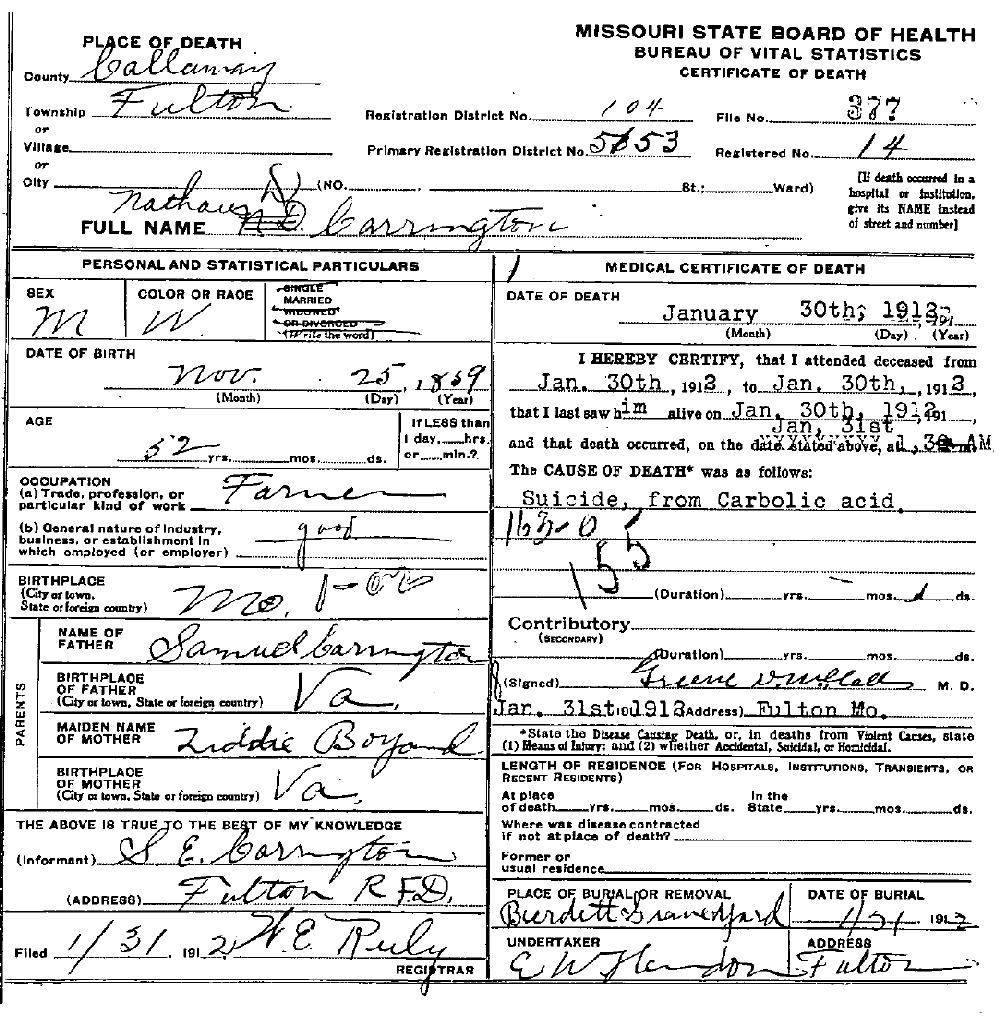 MISSOURI STATE BOARD OF HEALTH
BUREAU OF VITAL STATISTICS
CERTIFICATE OF DEATH
PLACE OF DEATH
County Callaway
Township Fulton
or
Village
or
City (NO. , St.; Ward)
Registration District No. 104 File No. 377
Primary Registration District No. 5153 Registered No. 14
[If death occurred in a
hospital or institution,
give its NAME instead
of street and number]
Nathan D
FULL NAME N D Carrington
PERSONAL AND STATISTICAL PARTICULARS
SEX
M
COLOR OR RACE
W
SINGLE
MARRIED
WIDOWED
OR DIVORCED
(Write the word)
DATE OF BIRTH
Nov. 25, 1859
(Month) (Day) (Year)
AGE
52 yrs. mos. ds.
If LESS than
1 day, hrs.
or min.?
OCCUPATION
(a) Trade, profession, or
particular kind of work Farmer
(b) General nature of industry,
business, or establishment in
which employed (or employer) good
BIRTHPLACE
(City or town,
State or foreign country) Mo. 1-00
PARENTS
NAME OF
FATHER Samuel Carrington
BIRTHPLACE
OF FATHER
(City or town, State or foreign country) Va.
MAIDEN NAME
OF MOTHER Liddie Boyard
BIRTHPLACE
OF MOTHER
(City or town, State or foreign country) Va.
THE ABOVE IS TRUE TO THE BEST OF MY KNOWLEDGE
(Informant) S E. Carrington
(ADDRESS) Fulton R.F.D.
Filed 1/31, 1912 W.E. Ruly
REGISTRAR
1 MEDICAL CERTIFICATE OF DEATH
DATE OF DEATH
January 30th, 1912
(Month) (Day) (Year)
I HEREBY CERTIFY, that I attended deceased from
Jan. 30th, 1912, to Jan. 30th, 1912
that I last saw him alive on Jan. 30th, 1912, 191
Jan, 31st
and that death occurred, on the date stated above, at 1,30 AM
The CAUSE OF DEATH* was as follows:
Suicide, from Carbolic acid.
1630
155
(Duration) yrs. mos. 1 ds.
Contributory
(SECONDARY)
(Duration) yrs. mos. ds.
(Signed) Greene D. McCall M. D.
Jan. 31st 1912 (Address) Fulton Mo.
*State the Disease Causing Death, or, in deaths from Violent Causes, state
(1) Means of Injury; and (2) whether Accidental, Suicidal, or Homicidal.
LENGTH OF RESIDENCE (FOR HOSPITALS, INSTITUTIONS, TRANSIENTS, OR
RECENT RESIDENTS)
At place In the
of death yrs. mos. ds. State yrs. mos. ds.
Where was disease contracted
if not at place of death?
Former or
usual residence
PLACE OF BURIAL OR REMOVAL
Burdett Graveyard
DATE OF BURIAL
1/31 1912
UNDERTAKER
E W Herndon
ADDRESS
Fulton